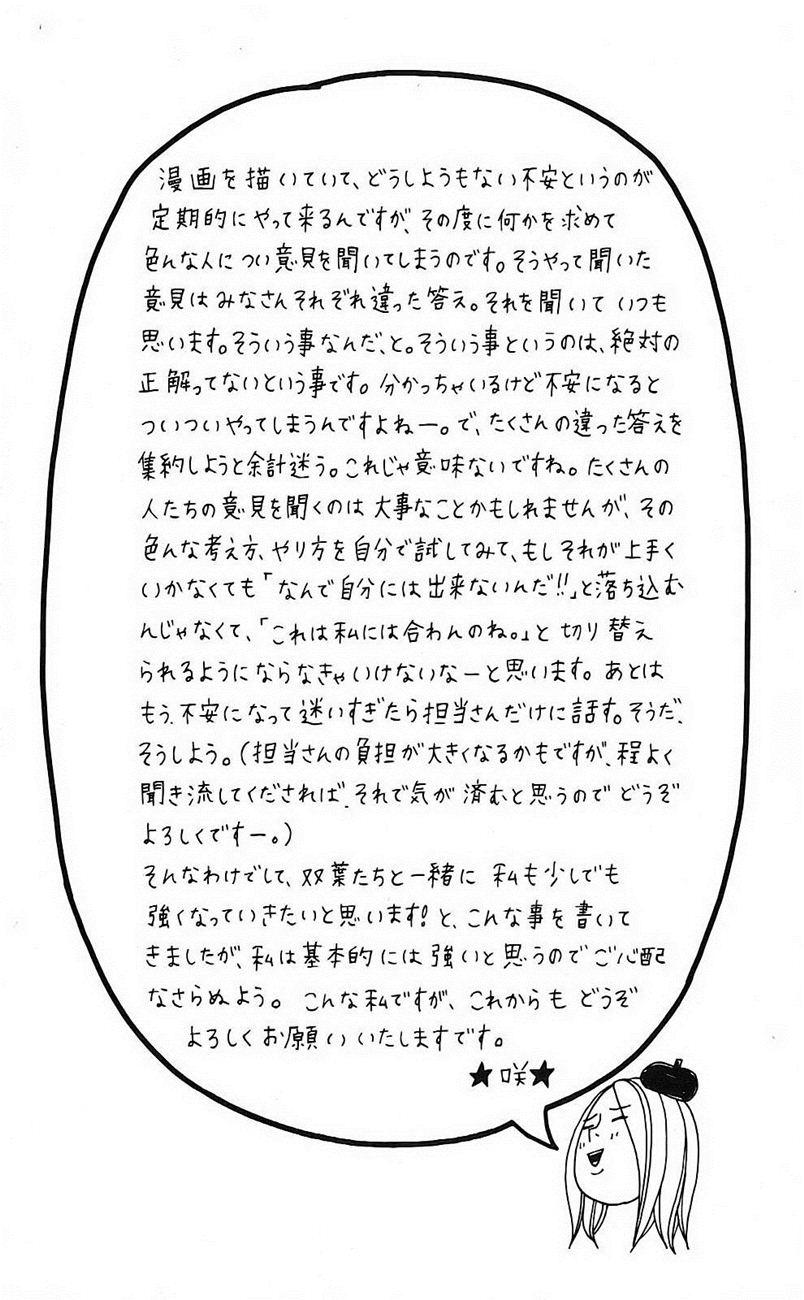 漫画を描いていて、どうしようもない不安というのが
定期的にやって来るんですが、その度に何かを求めて
色んな人につい意見を聞いてしまうのです。そうやって聞いた
意見はみなさんそれぞれ違った答え。それを聞いていつも
思います。そういう事なんだ、と。そういう事というのは、絶対の
正解ってないという事です。分かっちゃいるけど不安になると
ついついやってしまうんですよねー。で、たくさんの違った答えを
集約しようと余計迷う。これじゃ意味ないですね。たくさんの
人たちの意見を聞くのは大事なことかもしれませんが、その
色んな考え方、やり方を自分で試してみて、もしそれが上手く
いかなくても「なんで自分には出来ないんだ!!」と落ち込む
んじゃなくて、「これは私には合わんのね。」と切り替え
られるようにならなきゃいけないなーと思います。あとは
もう、不安になって迷いすぎたら担当さんだけに話す。そうだ、
そうしよう。(担当さんの負担が大きくなるかもですが、程よく
聞き流してくだされば、それで気が済むと思うのでどうぞ
よろしくですー。)
そんなわけでして、双葉たちと一緒に私も少しでも
強くなっていきたいと思います!と、こんな事を書いて
きましたが、私は基本的には強いと思うのでご心配
なさらぬよう。こんな私ですが、これからもどうぞ
よろしくお願いいたしますです。
★咲★